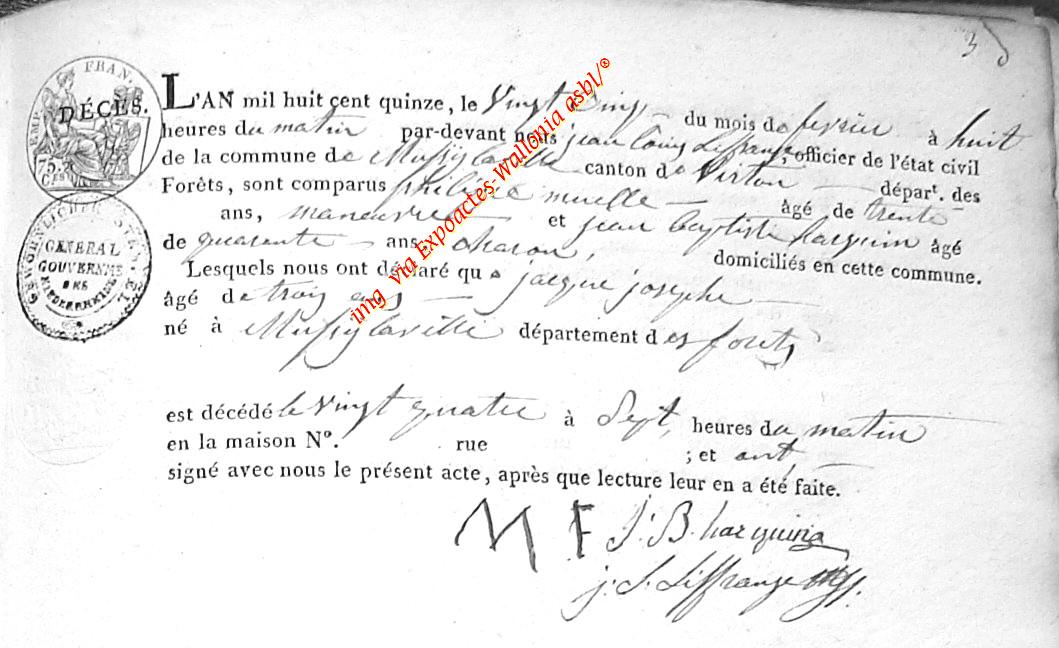 3
EMP. FRAN.
DÉCÈS.
75
CES
GENERAL
GOUVERNME
L'AN mil huit cent quinze, le Vingt Cinq du mois de fevrier à huit
heures du matin par-devant nous jean Louis Liffrange, officier de l'état civil
de la commune de Mussylaville canton de Virton dépar.t des
Forêts, sont comparus philippe muelle âgé de trente
ans, maneuvre et jean baptiste harquin âgé
de quarente ans, charon, domiciliés en cette commune.
Lesquels nous ont déclaré que jacque josephe
âgé de trois ans
né à Mussylaville département des forets
est décédé le Vingt quatre à Sept, heures du matin
en la maison N°. rue ; et ont
signé avec nous le présent acte, après que lecture leur en a été faite.
M F J. B. harquin
j. L. Liffrange
img via Expoactes-Wallonia asbl/®